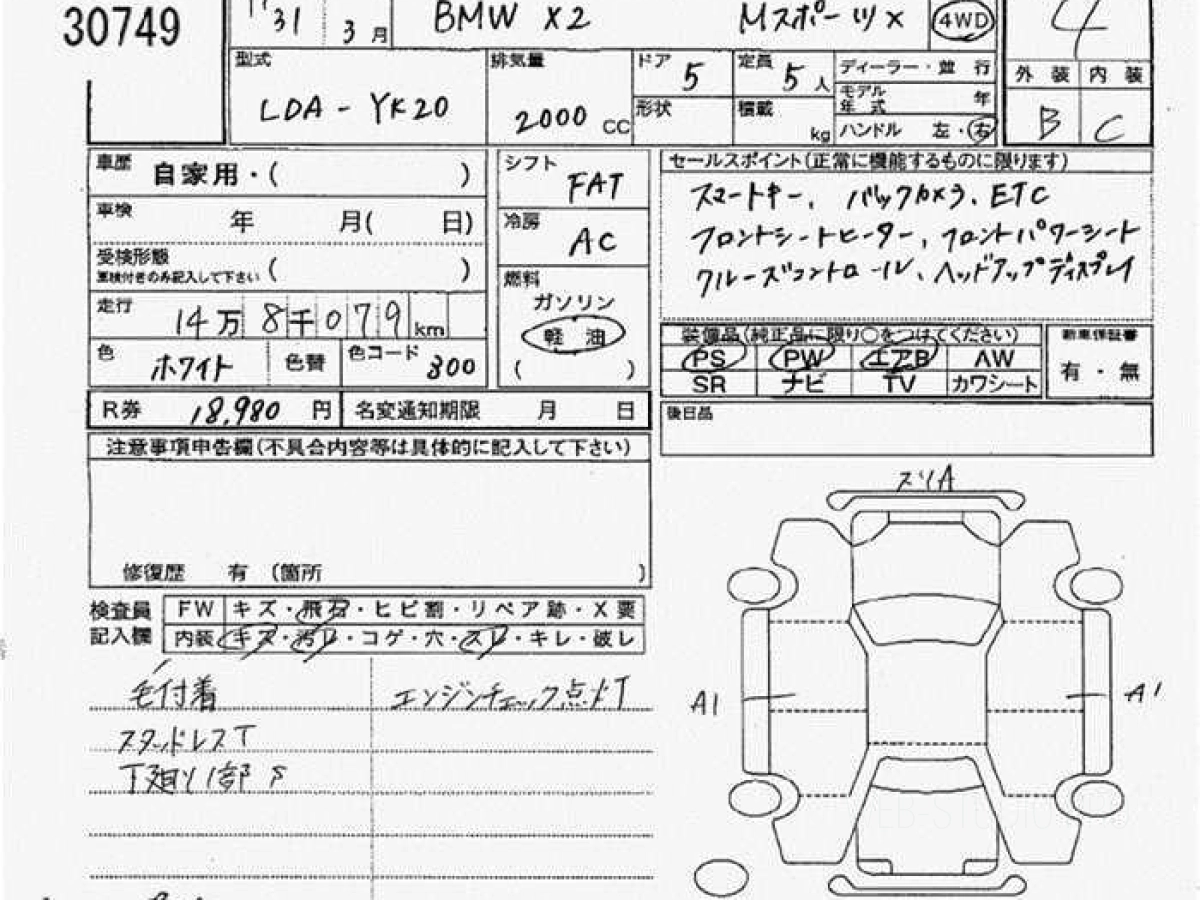 30749
31 3月 BMW X2 Mスポーツ X 4WD 4
型式 LDA-YK20
排気量 2000 CC
ドア 5 定員 5人 ディーラー・並 行
モデル年式 年
形状 積載 kg ハンドル 左・右
外 装 内 装
B C
車歴 自家用・( )
車検 年 月( 日)
受検形態
車検付きのみ記入して下さい ( )
走行 14万8千079km
色 ホワイト 色替 色コード 300
シフト FAT
冷房 AC
燃料
ガソリン
軽 油
( )
セールスポイント(正常に機能するものに限ります)
スマートキー、バックカメラ、ETC
フロントシートヒーター、フロントパワーシート
クルーズコントロール、ヘッドアップディスプレイ
装備品(純正品に限り○をつけてください)
PS PW エアB AW
SR ナビ TV カワシート
新車保証書
有・無
R券 18,980 円 名変通知期限 月 日
後日品
注意事項申告欄(不具合内容等は具体的に記入して下さい)
修復歴 有 (箇所 )
検査員記入欄
FW キズ・飛石・ヒビ割・リペア跡・X要
内装 キズ・汚レ・コゲ・穴・スレ・キレ・破レ
毛付着 エンジンチェック点灯
スタッドレスT
下廻り1部S
スリA
A1 A1